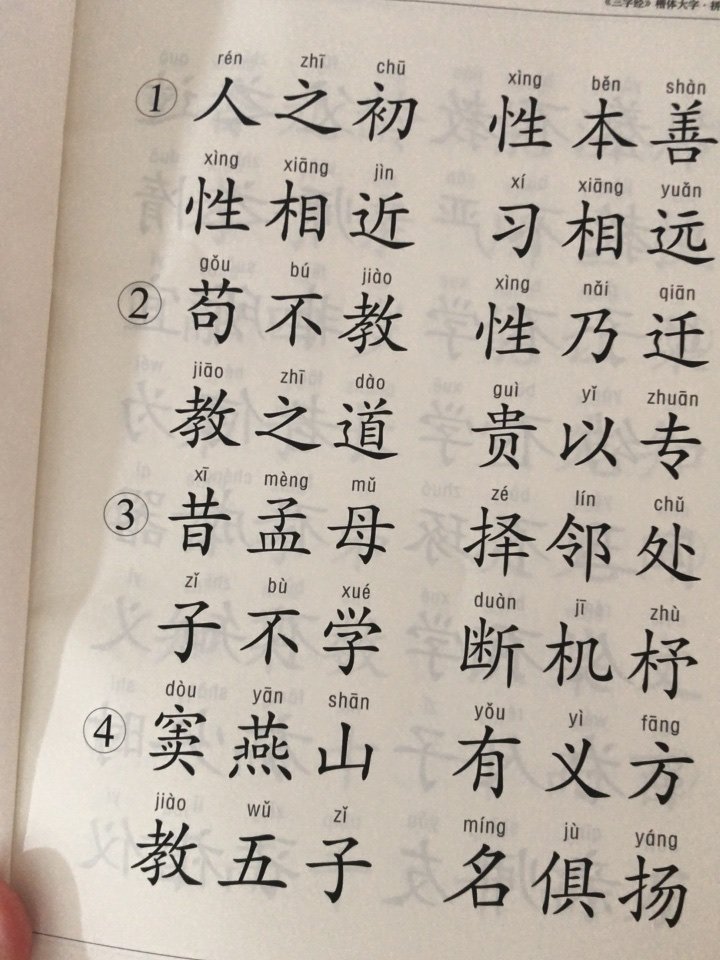 《三字经》楷体大字·拼
rén zhī chū xìng běn shàn
① 人之初 性本善
xìng xiāng jìn xí xiāng yuǎn
性相近 习相远
gǒu bú jiào xìng nǎi qiān
② 苟不教 性乃迁
jiāo zhī dào guì yǐ zhuān
教之道 贵以专
xī mèng mǔ zé lín chǔ
③ 昔孟母 择邻处
zǐ bù xué duàn jī zhù
子不学 断机杼
dòu yān shān yǒu yì fāng
④ 窦燕山 有义方
jiào wǔ zǐ míng jù yáng
教五子 名俱扬